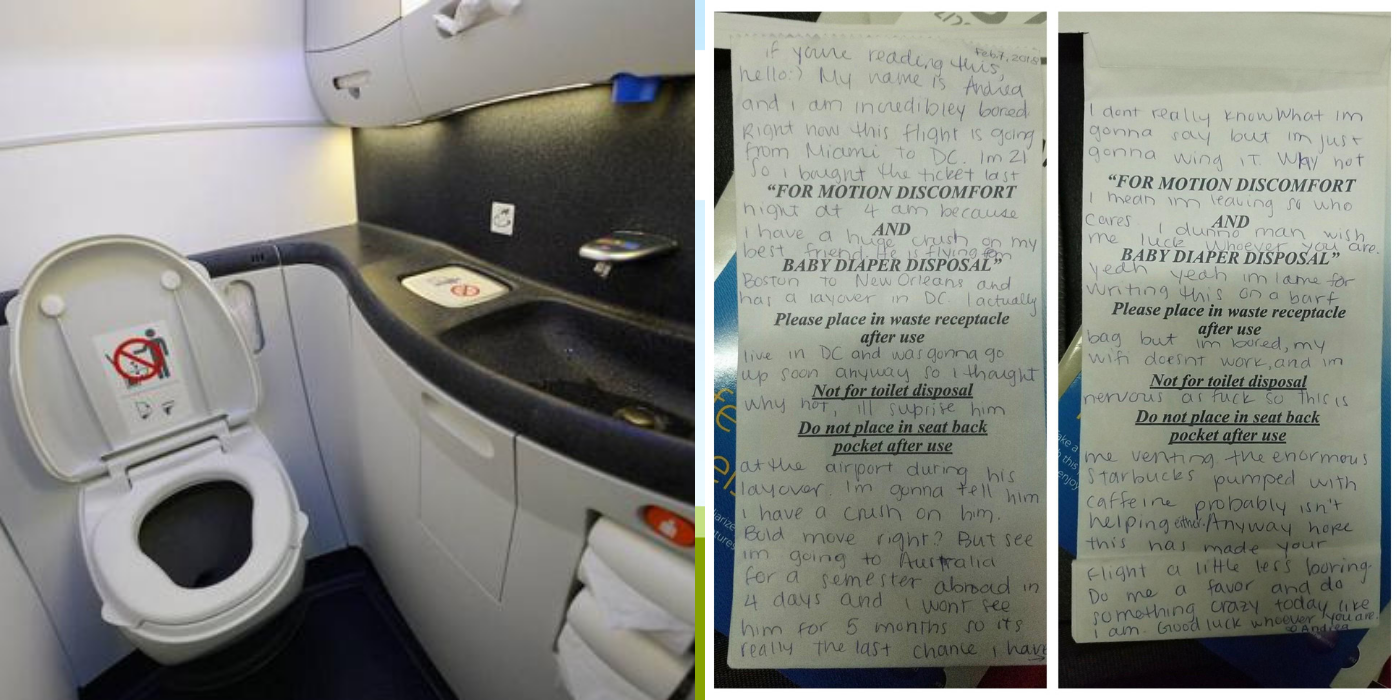 Feb 7, 2018
if youre reading this,
hello:) My name is Andrea
and i am incredibley bored.
Right now this flight is going
from Miami to DC. Im 21
so i bought the ticket last
"FOR MOTION DISCOMFORT
night at 4 am because
AND
i have a huge crush on my
best friend. He is flying from
BABY DIAPER DISPOSAL"
Boston to New Orleans and
has a layover in DC I actually
Please place in waste receptacle
after use
live in DC and was gonna go
up soon anyway so i thought
Not for toilet disposal
why not, ill suprise him
Do not place in seat back
pocket after use
at the airport during his
layover. Im gonna tell him
i have a crush on him.
Bold move right? But see
im going to Australia
for a semester abroad in
4 days and i wont see
him for 5 months so its
really the last chance i have
I dont really know what im
gonna say but im just
gonna wing it. Why not
"FOR MOTION DISCOMFORT
i mean im leaving so who
AND
cares i dunno man wish
me luck whoever you are.
BABY DIAPER DISPOSAL"
yeah yeah im lame for
writing this on a barf
Please place in waste receptacle
after use
bag but im bored, my
wifi doesnt work, and im
Not for toilet disposal
nervous as fuck so this is
Do not place in seat back
pocket after use
me venting the enormous
Starbucks pumped with
caffeine probably isn't
helping either. Anyway hope
this has made your
flight a little less boring.
Do me a favor and do
something crazy today like
i am. Good luck whoever you are.
Andrea